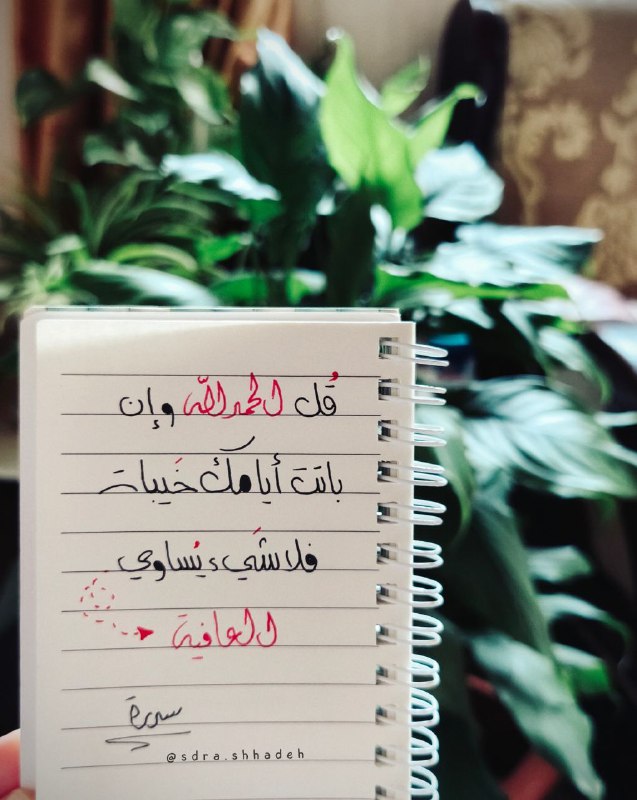 قُل الحمدالله وإن
باتت أيامك خَيبات
فلا شَيء يُساوي
العافية
سدرة
@sdra.shhadeh